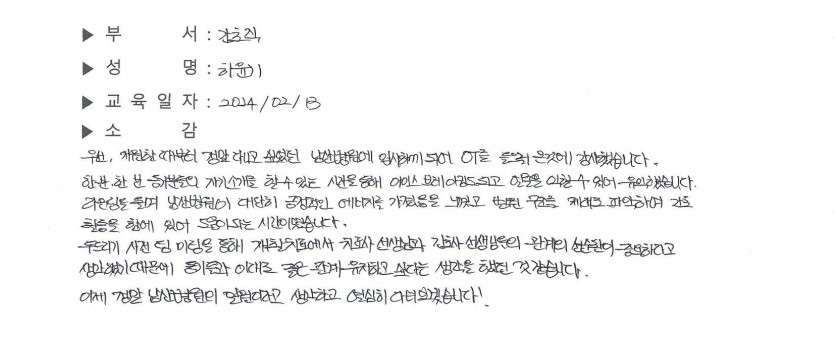 ▶ 부 서 : 간호직
▶ 성 명 : 하윤기
▶ 교 육 일 자 : 2024/02/13
▶ 소 감
우선, 개원할 때부터 정말 다니고 싶었던 남산병원에 입사하게 되어 OT를 들으러 온것에 감사했습니다.
한분 한 분 동분들의 자기소개를 할 수 있는 시간을 통해 아이스 브레이킹도되고 얼굴을 익힐 수 있어 유익했습니다.
라운딩을 돌며 남산병원이 대단히 긍정적인 에너지를 가졌음을 느꼈고 병원 구조를 제대로 파악하여 간호
활동을 함에 있어 도움이되는 시간이었습니다.
사전 팀 미팅을 통해 재활치료에서 치료사 선생님과 간호사 선생님들의 관계의 중요하다고
생각했기 때문에 동기들과 이대로 좋은 관계 유지하고 싶다는 생각을 했던 것 같습니다.
이제 정말 남산병원의 일원이라고 생각하고 열심히 다니겠습니다!